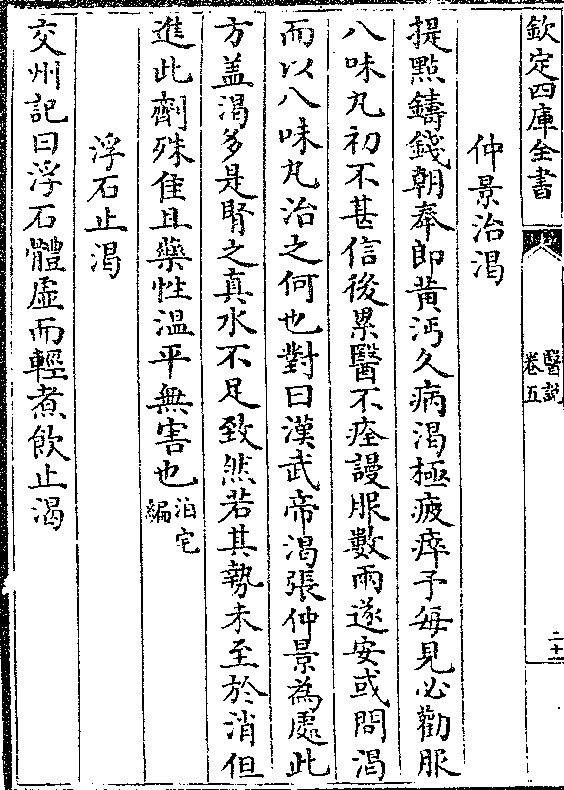 欽定四庫全書
醫說
卷五
二十
仲景治渴
提點鑄錢朝奉郎黄沔久病渴極疲瘁予每見必勸服
八味丸初不甚信後累醫不痊謾服數兩遂安或問渴
而以八味丸治之何也對曰漢武帝渴張仲景為處此
方盖渴多是腎之真水不足致然若其勢未至於消但
進此劑殊佳且藥性温平無害也
泊宅
編
浮石止渴
交州記曰浮石體虚而輕煮飲止渴